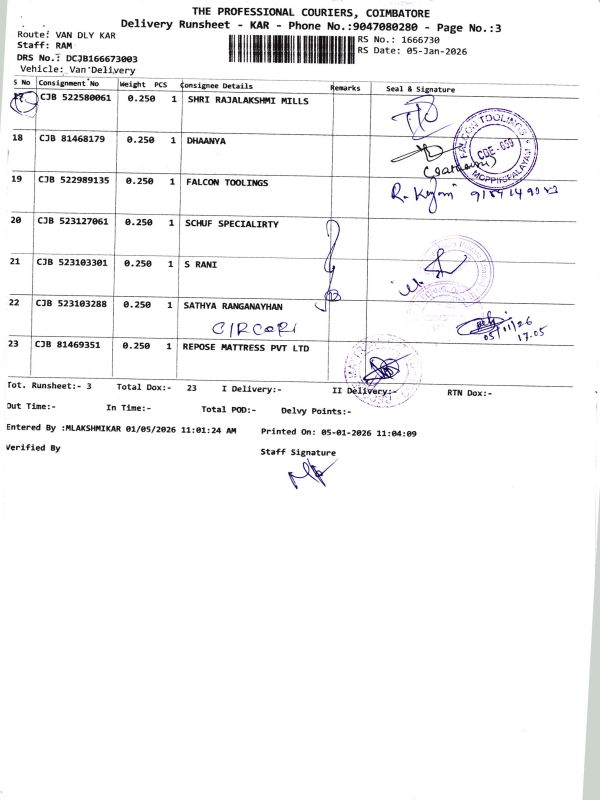 THE PROFESSIONAL COURIERS, COIMBATORE
Delivery Runsheet - KAR - Phone No.:9047080280 - Page No.:3
Route: VAN DLY KAR
Staff: RAM
DRS No.: DCJB166673003
Vehicle: Van Delivery
RS No.: 1666730
RS Date: 05-Jan-2026
S No Consignment No Weight PCS Consignee Details Remarks Seal & Signature
17 CJB 522580061 0.250 1 SHRI RAJALAKSHMI MILLS
18 CJB 81468179 0.250 1 DHAANYA
FALCON TOOLINGS
CBE - 039
MOPPIRIPALAYAM
19 CJB 522989135 0.250 1 FALCON TOOLINGS
20 CJB 523127061 0.250 1 SCHUF SPECIALIRTY
21 CJB 523103301 0.250 1 S RANI
22 CJB 523103288 0.250 1 SATHYA RANGANAYHAN
CIRCORI
17.05
23 CJB 81469351 0.250 1 REPOSE MATTRESS PVT LTD
Tot. Runsheet:- 3 Total Dox:- 23 I Delivery:- II Delivery:- RTN Dox:-
Out Time:- In Time:- Total POD:- Delvy Points:-
Entered By :MLAKSHMIKAR 01/05/2026 11:01:24 AM Printed On: 05-01-2026 11:04:09
Verified By Staff Signature